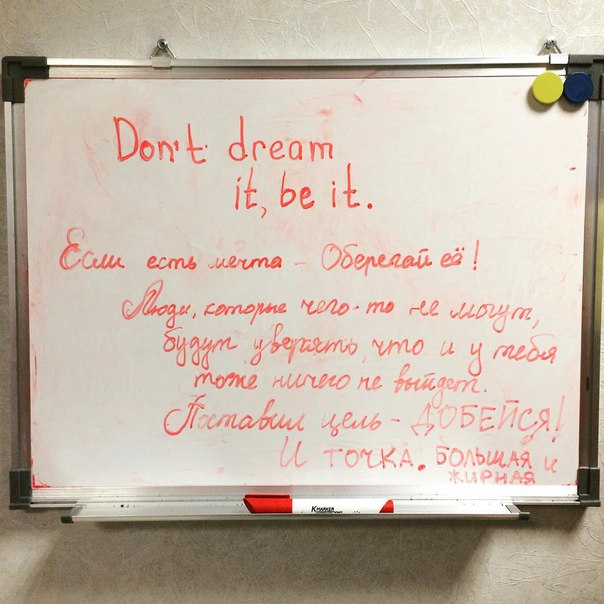 Don't dream
it, be it.
Если есть мечта - Оберегай её!
Люди, которые чего-то не могут,
будут уверять, что и у тебя
тоже ничего не выйдет.
Поставил цель - ДОБЕЙСЯ!
И ТОЧКА. БОЛЬШАЯ и
ЖИРНАЯ
K MARKER